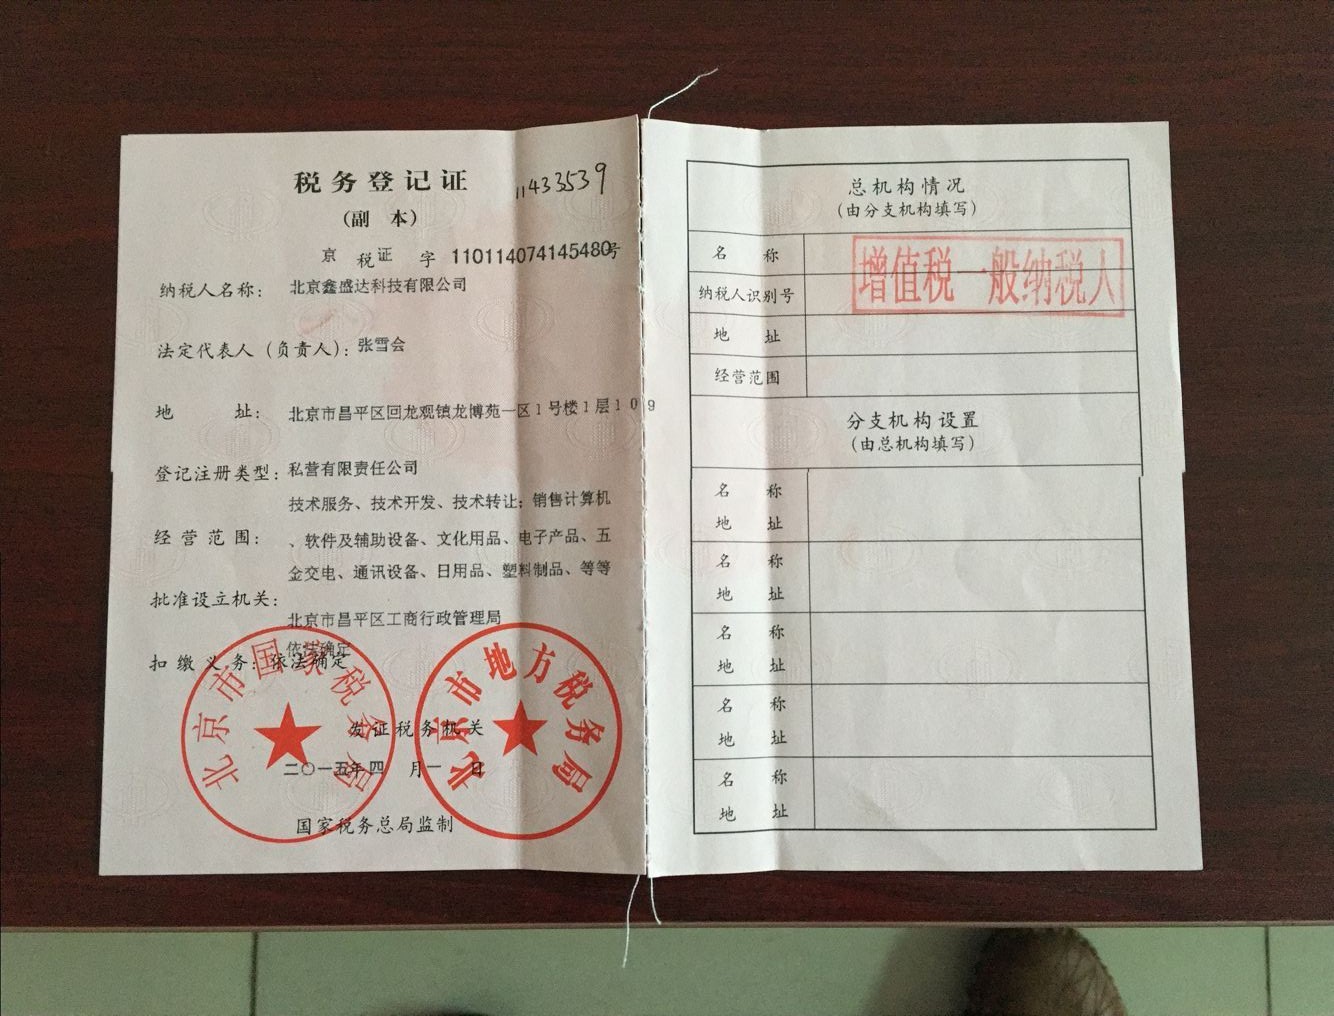 税务登记证
11433539
(副 本)
京 税证 字 110114074145480号
纳税人名称: 北京鑫盛达科技有限公司
法定代表人(负责人): 张雪会
地 址: 北京市昌平区回龙观镇龙博苑一区1号楼1层109
登记注册类型: 私营有限责任公司
技术服务、技术开发、技术转让; 销售计算机
经营范围: 、软件及辅助设备、文化用品、电子产品、五
金交电、通讯设备、日用品、塑料制品、等等
批准设立机关:
北京市昌平区工商行政管理局
依法确定
扣缴义务: 依法确定
北京市国家税务局
北京市地方税务局
发证税务机关
二〇一五年四 月一 日
国家税务总局监制
总机构情况
(由分支机构填写)
名 称
增值税一般纳税人
纳税人识别号
地 址
经营范围
分支机构设置
(由总机构填写)
名 称
地 址
名 称
地 址
名 称
地 址
名 称
地 址
名 称
地 址